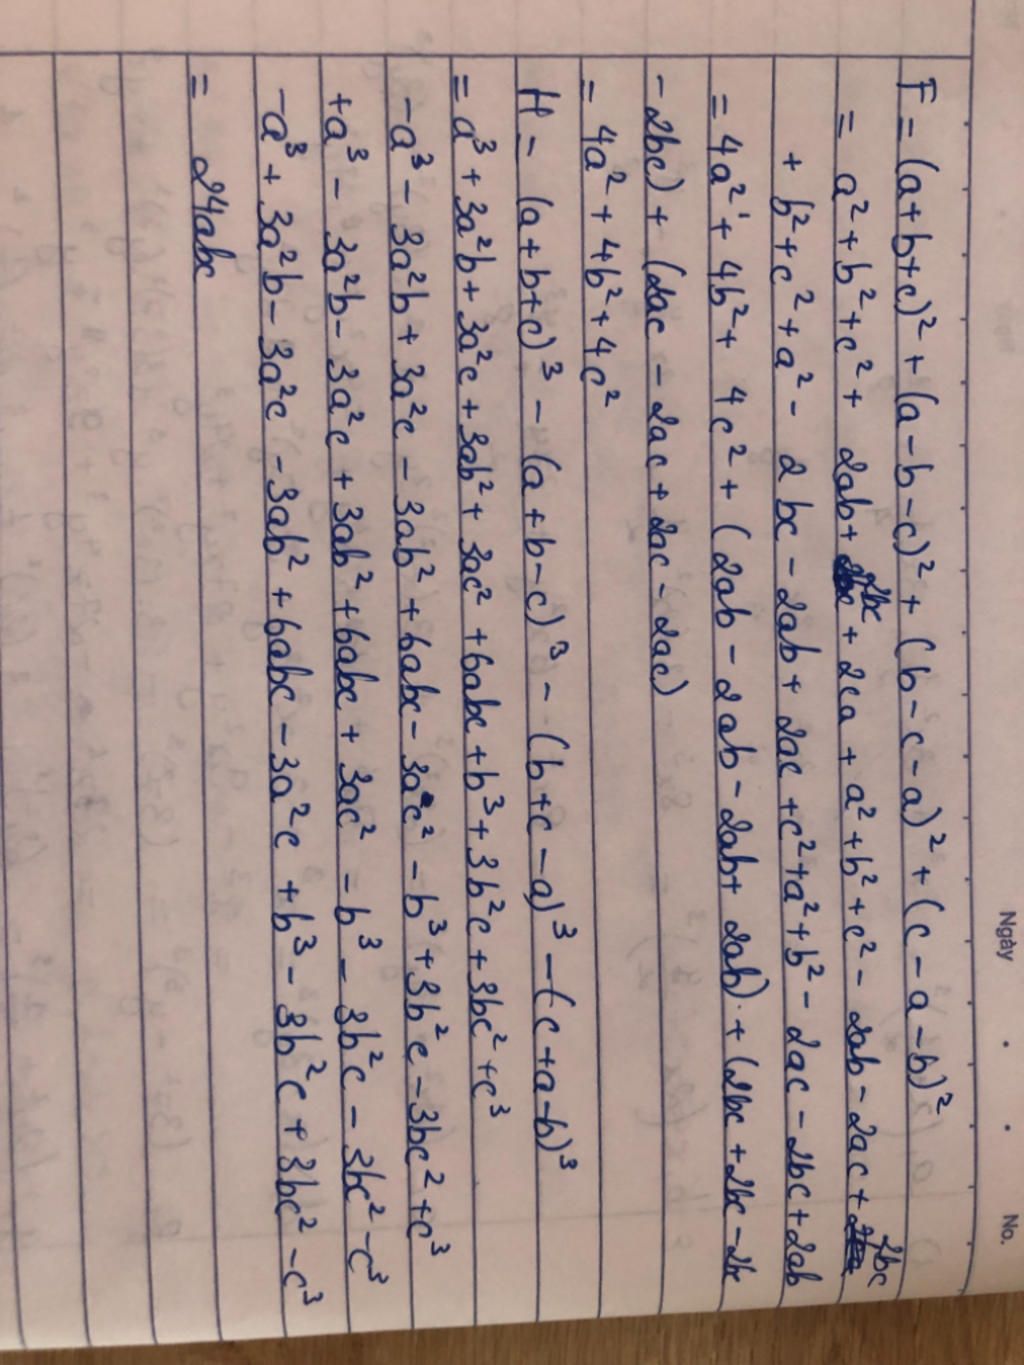 Ngày . . No.
F = (a+b+c)² + (a-b-c)² + (b-c-a)² + (c-a-b)²
= a² + b² + c² + 2ab + 2bc + 2ca + a² + b² + c² - 2ab - 2ac + 2bc
+ b² + c² + a² - 2bc - 2ab + 2ac + c² + a² + b² - 2ac - 2bc + 2ab
= 4a² + 4b² + 4c² + (2ab - 2ab - 2ab + 2ab) + (2bc + 2bc - 2bc
- 2bc) + (2ac - 2ac + 2ac - 2ac)
= 4a² + 4b² + 4c²
H = (a+b+c)³ - (a+b-c)³ - (b+c-a)³ - (c+a-b)³
= a³ + 3a²b + 3a²c + 3ab² + 3ac² + 6abc + b³ + 3b²c + 3bc² + c³
- a³ - 3a²b + 3a²c - 3ab² + 6abc - 3ac² - b³ + 3b²c - 3bc² + c³
+ a³ - 3a²b - 3a²c + 3ab² + 6abc + 3ac² - b³ - 3b²c - 3bc² - c³
- a³ + 3a²b - 3a²c - 3ab² + 6abc - 3a²c + b³ - 3b²c + 3bc² - c³
= 24abc